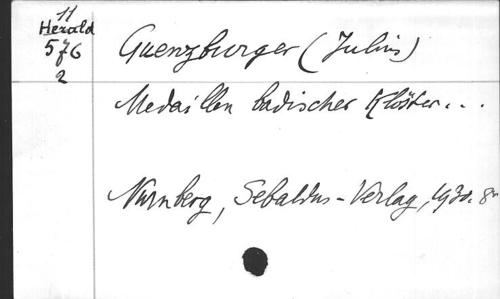 11
Herald
576
2
Guenzburger (Julius)
Medaillen badischer Klöster...
Nurnberg, Sebaldus-Verlag, 1930. 8º